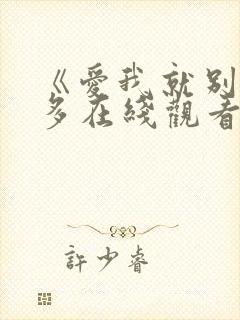 《愛我就別
多在綫觀看
許少睿